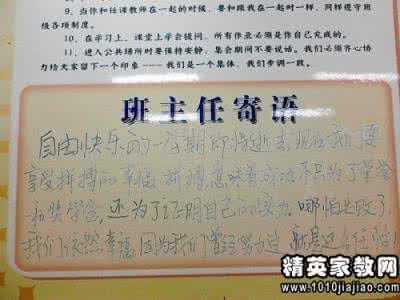 9、当你和任课教师在一起的时候，要和跟我在一起时一样，同样遵守班
级各项制度。
10、在学习上，课堂上学会提问，所有作业必须是你自己完成的。
11、进入公共场所时要保持安静；集会期间不要说话。我们必须齐心协
力给大家留下一个印象——我们是一个集体，我们步调一致。
班主任寄语
自由快乐的一星期即将逝去，现在我们要
享受拼搏的幸福，拼搏意味着成功不只为了荣誉
和奖学金，还为了证明自己的实力。哪怕失败了
我们依然幸福，因为我们曾经努力过，
精英家教网
www.1010jiajiao.com